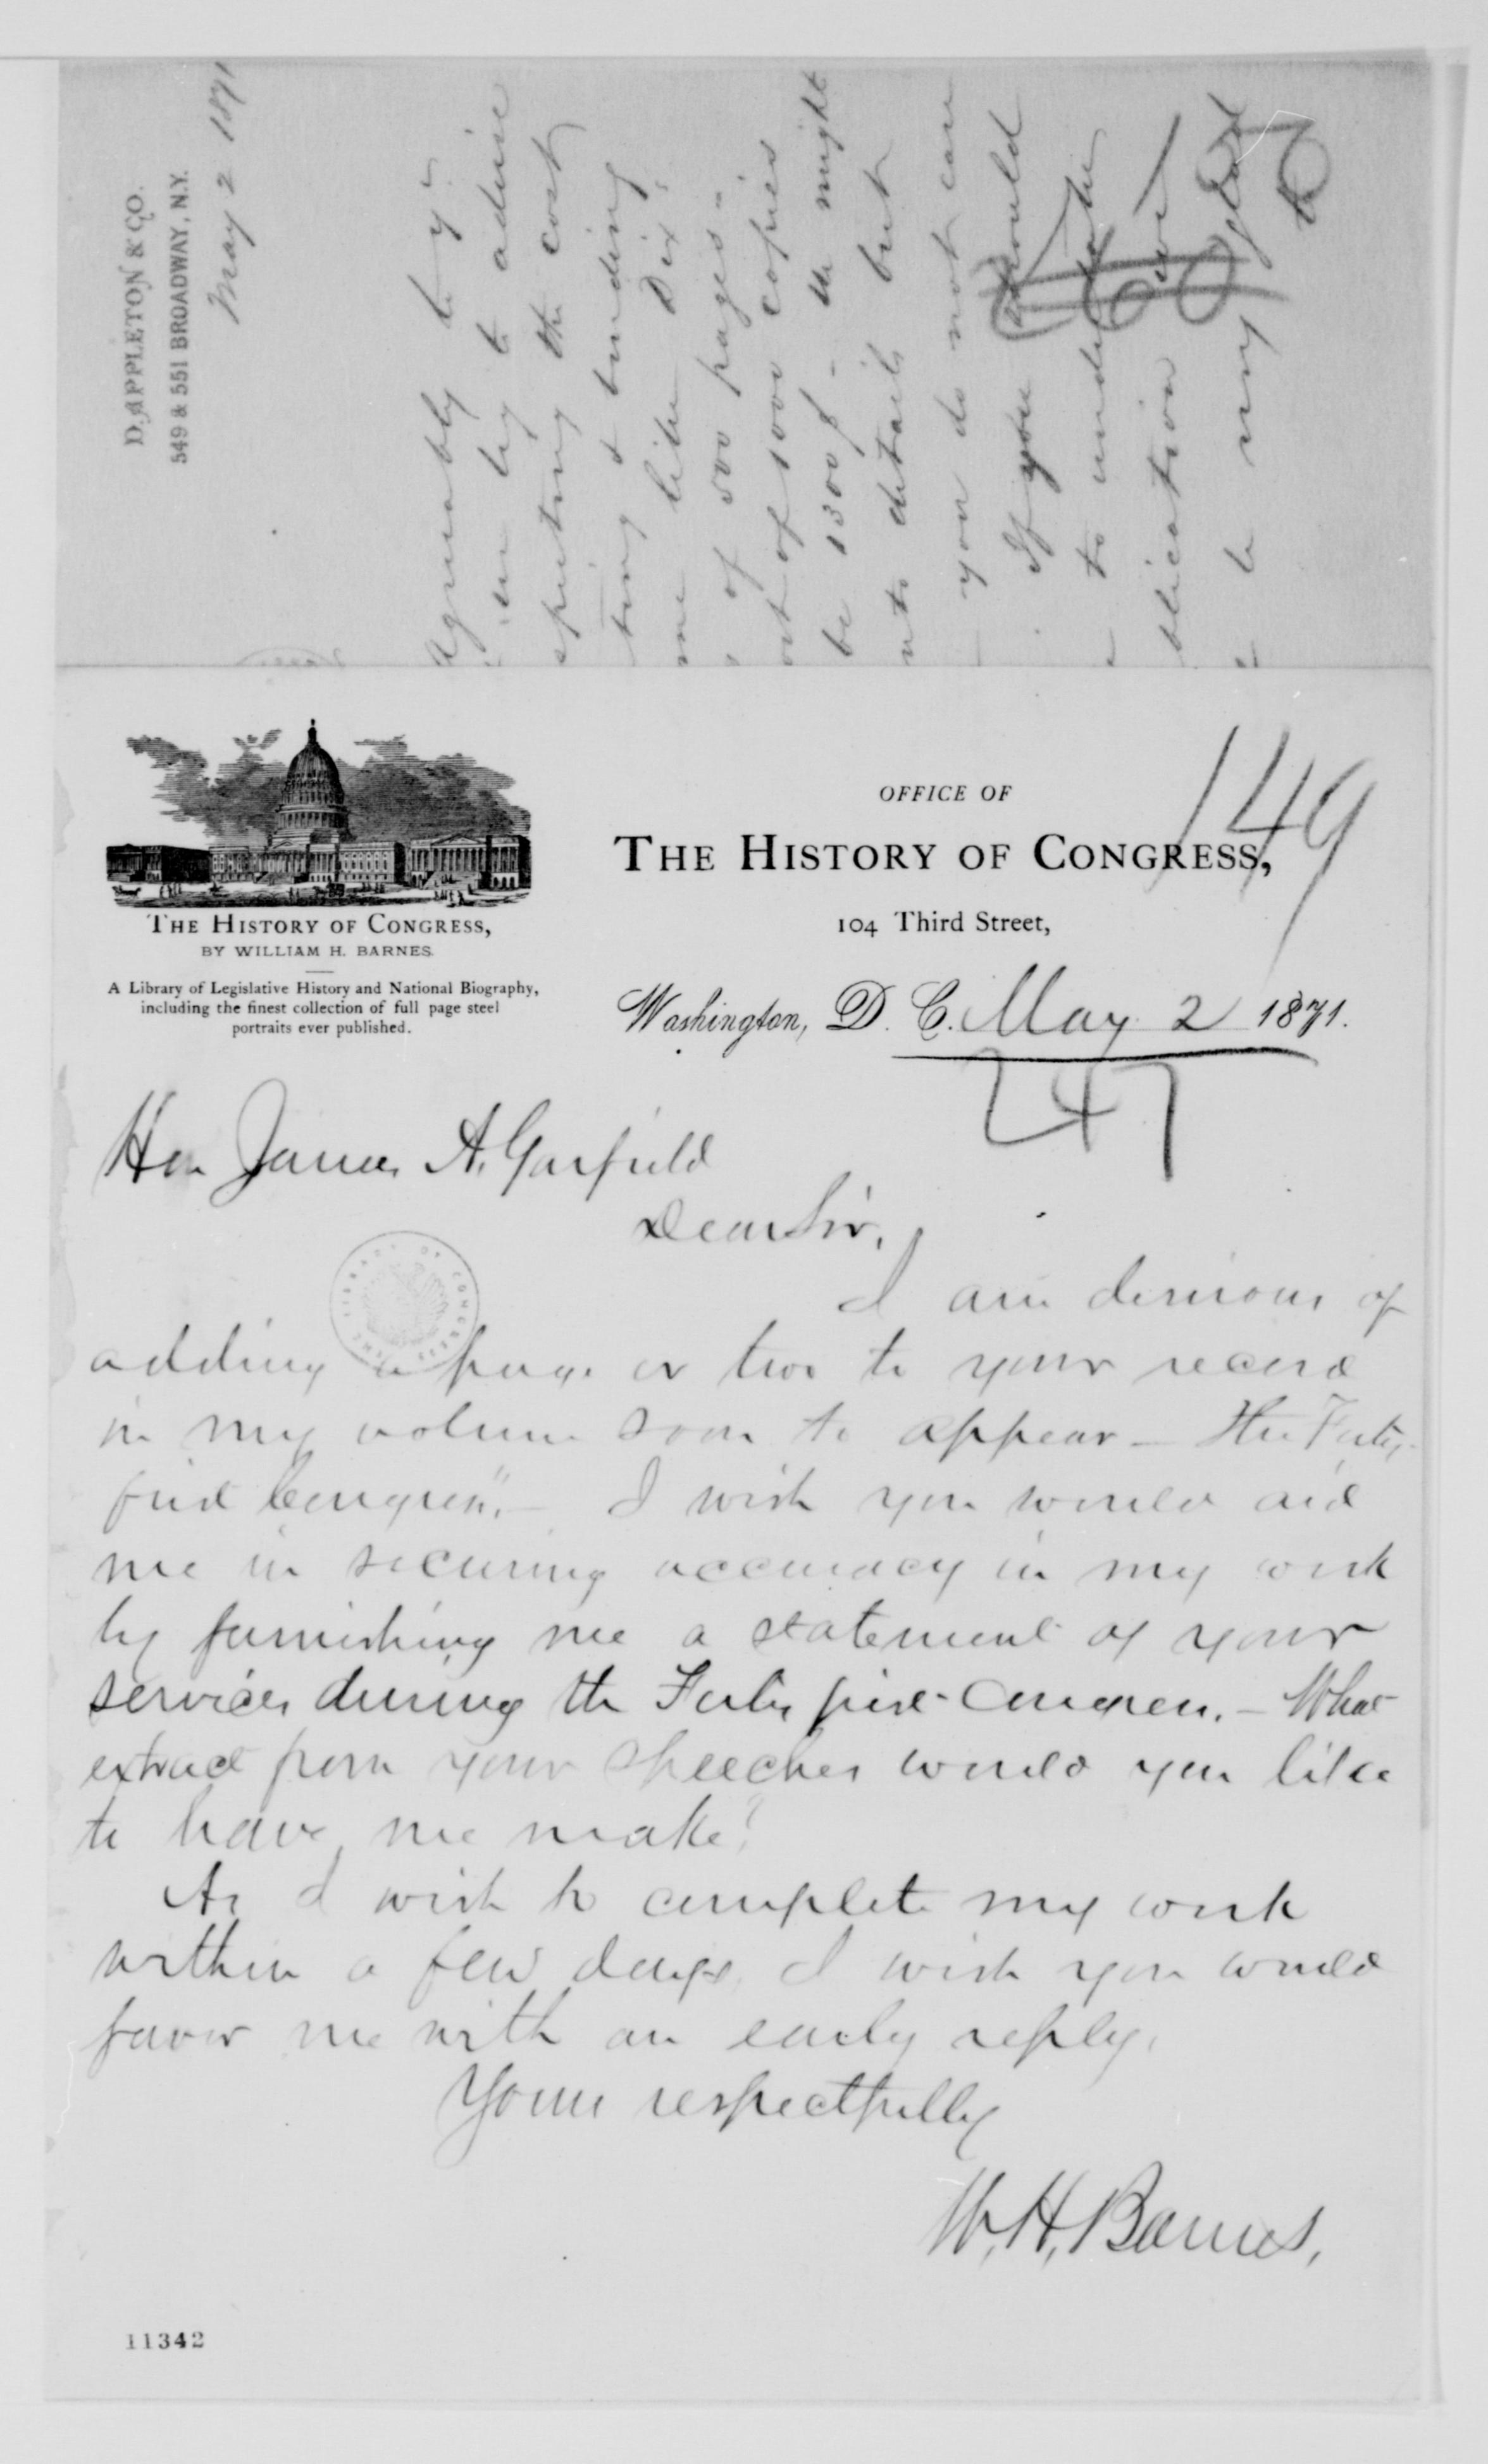 D. APPLETON & CO.
549 & 551 BROADWAY, N.Y.
May 2 1871
Agreeably to y
to advise
the cost
& binding
like Dix'
of 500 pages.
of 1000 copies
be 1300$ - we might
details but
you do not care
If you should
to undertake
our
be very glad
to
60
OFFICE OF
THE HISTORY OF CONGRESS,
149
104 Third Street,
Washington, D. C. May 2 1871.
247
THE HISTORY OF CONGRESS,
BY WILLIAM H. BARNES.
A Library of Legislative History and National Biography,
including the finest collection of full page steel
portraits ever published.
Hon James A. Garfield
Dear Sir,
I am desirous of
LIBRARY OF CONGRESS
adding a page or two to your record
in my volume soon to appear — The Forty-
first Congress". — I wish you would aid
me in securing accuracy in my work
by furnishing me a statement of your
services during the Forty first Congress. — What
extract from your speeches would you like
to have me make?
As I wish to complete my work
within a few days, I wish you would
favor me with an early reply.
Yours respectfully
W. H. Barnes,
11342